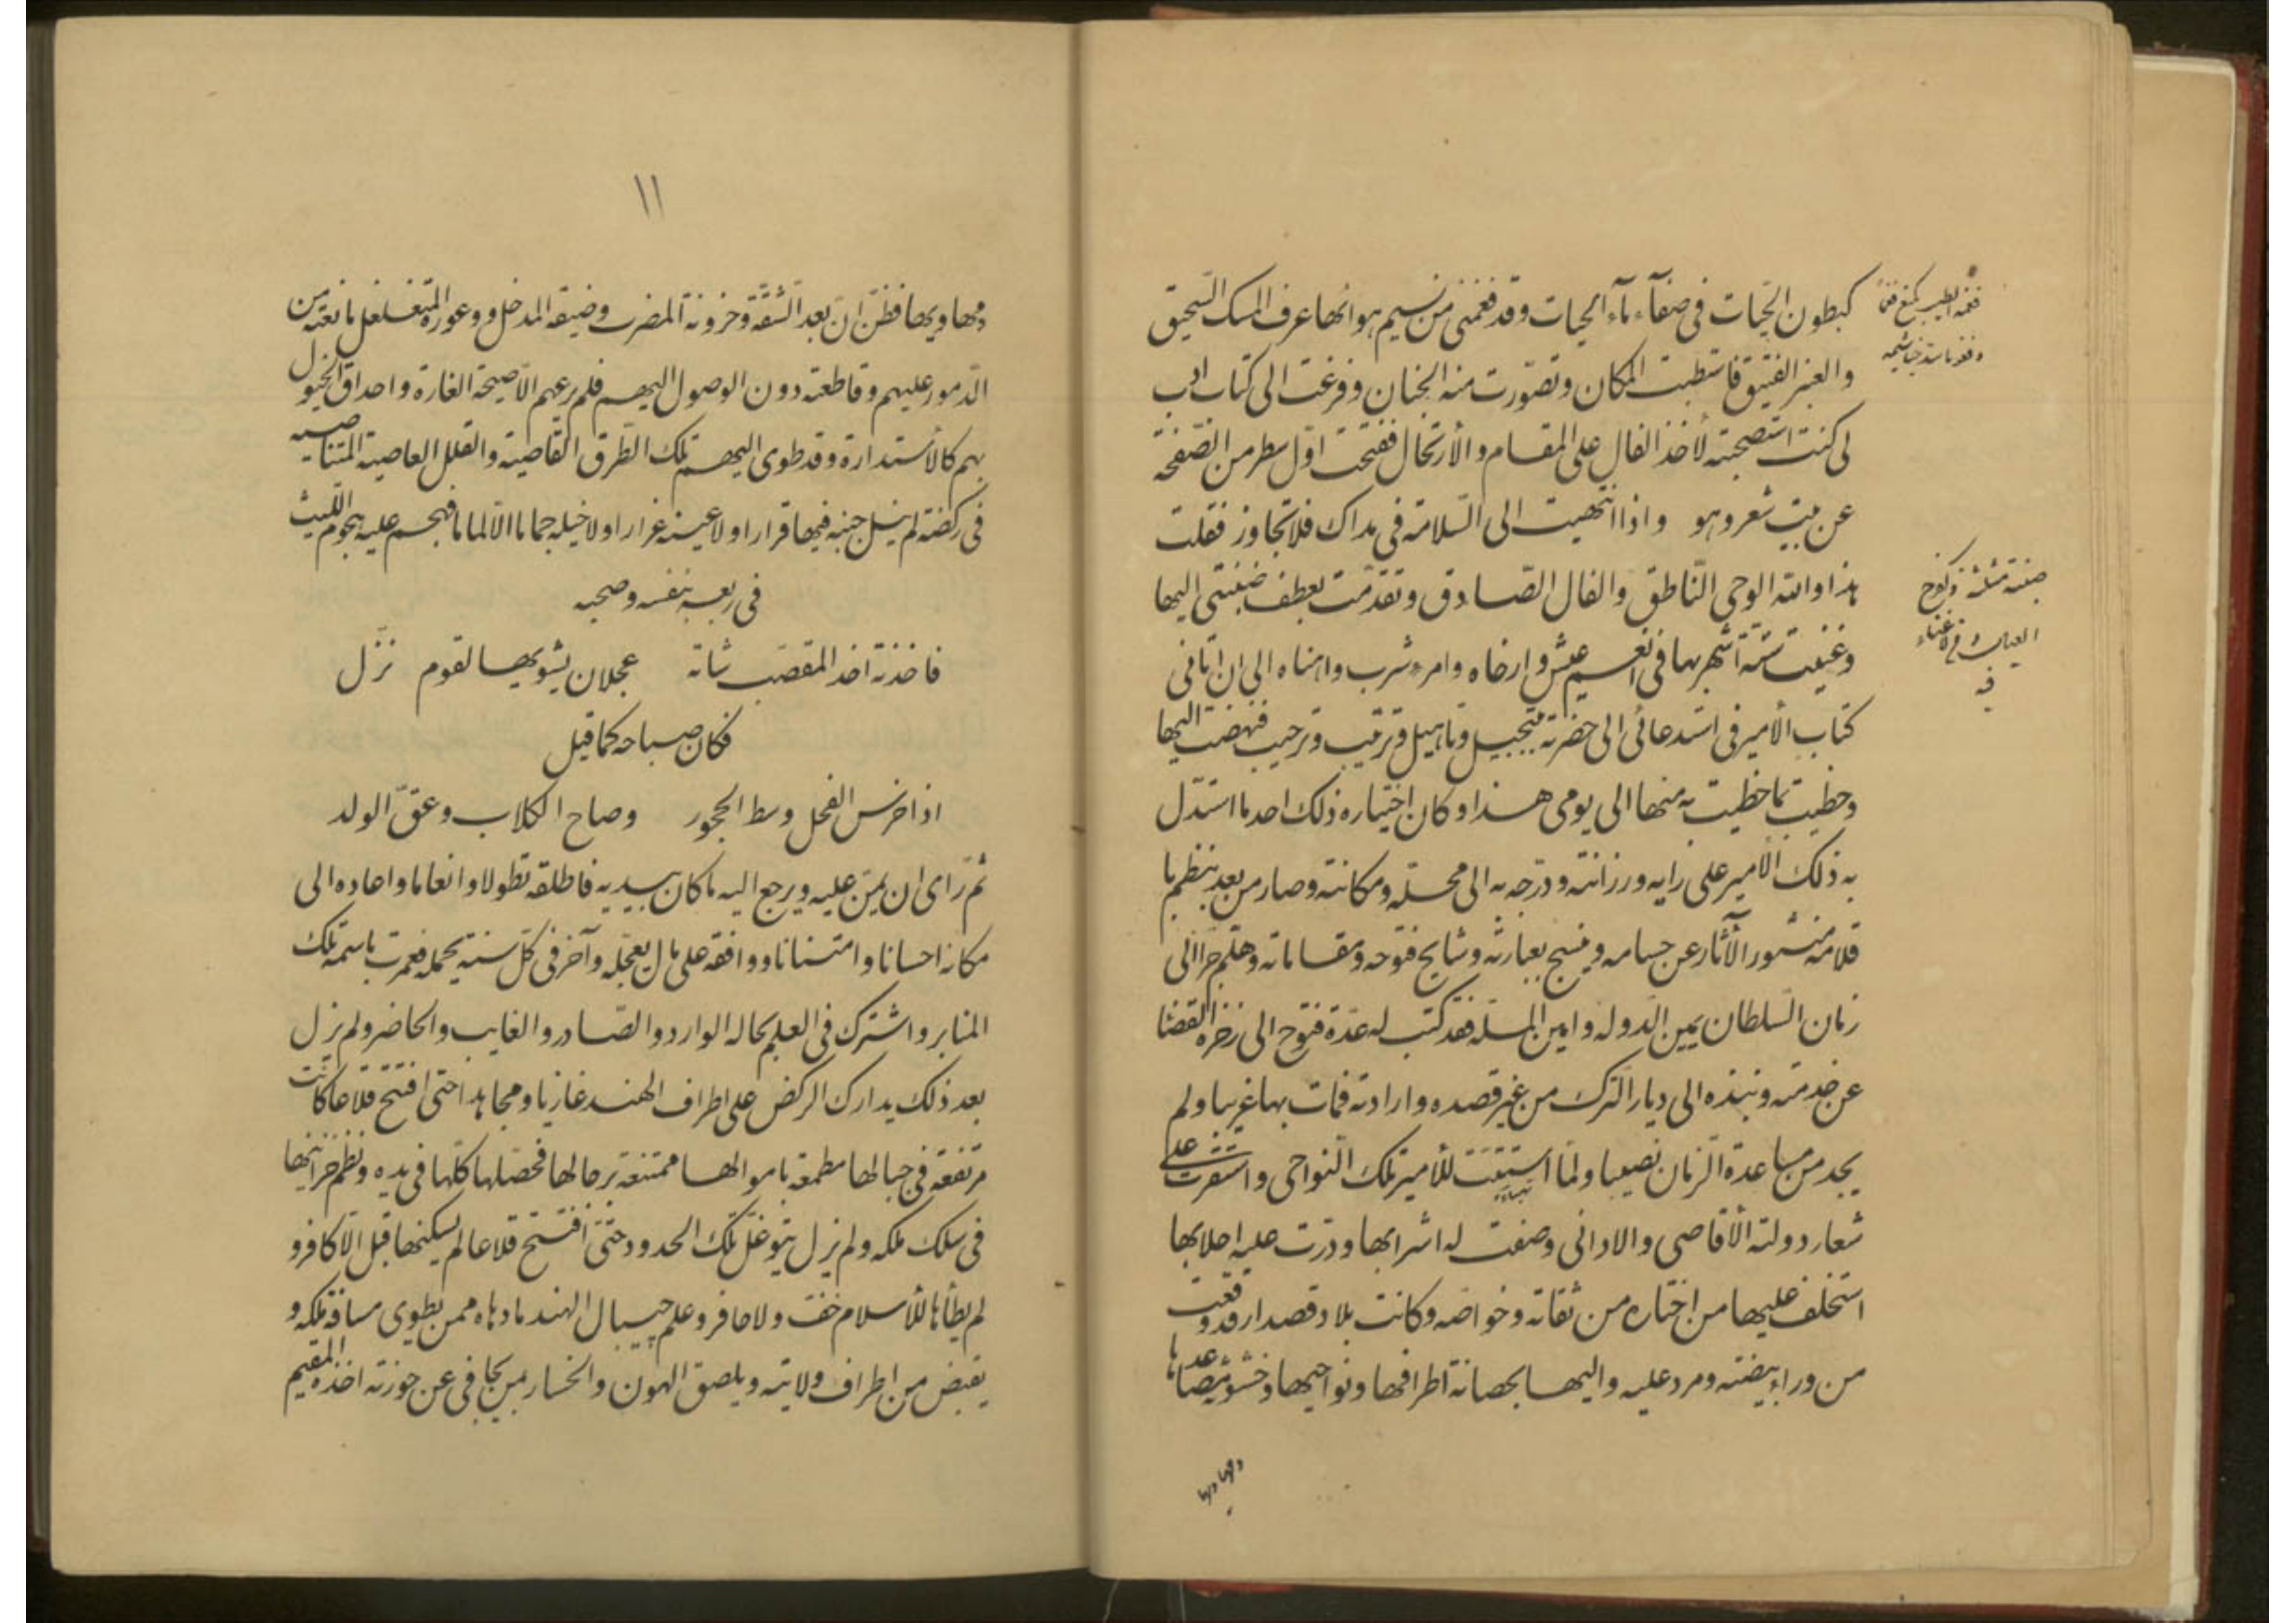 كبطون الحيات في صفآء مآء الحيات وقد فغمني من نسيم هوائها عرف المسك السحيق
والعنبر الفتيق فاستطبت المكان وتصورت منه الجنان وفرغت الى كتاب ادب
لى كنت استصحبته لأخذ الفال على المقام والأرتحال ففتحت اول سطر من الصفحة
عن بيت شعر وهو واذا انتهيت الى السلامة في مداك فلا تجاوز فقلت
هذا والله الوحى الناطق والفال الصادق وتقدمت بعطف ضبنتي اليها
وغنيت ستة اشهر بها في انعم عيش وارخاه وامرء شرب واهناه الى ان اتانى
كتاب الأمير في استدعائى الى حضرته بتبجيل وتاهيل وترتيب وترحيب فنهضت اليها
وحظيت بما حظيت به منها الى يومى هذا وكان اختياره ذلك احد ما استدل
به ذلك الأمير على رايه ورزانته ودرجه به الى محله ومكانته وصار من بعد ينظم با
قلامه منثور الآثار عن حسامه وينسج بعبارته وشايح فتوحه ومقاماته وهلم جرا الى
زمان السلطان يمين الدوله وامين المله فقد كتب له عدة فتوح الى زحزحه القضا
عن خدمته ونبذه الى ديار الترك من غير قصده وارادته فمات بها غريبا ولم
يجد من مساعدة الزمان نصيبا ولما استتبت للأمير تلك النواحى واستقرت على
شعار دولته الأقاصى والادانى وصفت له اشرابها ودرت عليه احلابها
استخلف عليها من اختاره من ثقاته وخواصه وكانت بلاد قصدار قد وقعت
من وراء بيضته ومرد عليه واليها بحصانة اطرافها ونواحيها وخشونة مصاعدها
ومهاويها
فغمه الطيب كمنع فغما
وفغوما سد خياشيمه
ضبنة مثلثة وكفرح
العيال ومن لا غناء
فيه
١١
ومهاويها فظن ان بعد الشقة وحزونة المضرب وضيقة المدخل ووعورة المتغلغل مانعته من
الدمور عليهم وقاطعته دون الوصول اليهم فلم يرعهم الا صيحة الغارة واحداق الخيول
بهم كالأستدارة وقد طوى اليهم تلك الطرق القاصية والقلل العاصية المتناصيه
في ركضة لم ينل جنبه فيها قرارا ولا عينه غرارا ولا خيله جماما الا لماما فهجم عليه هجوم الليث
في ربعه بنفسه وصحبه
فاخذته اخذ المقصب شاته عجلان يشويها لقوم نزل
فكان صباحه كما قيل
اذا خرس الفحل وسط الحجور وصاح الكلاب وعق الولد
ثم رأى ان يمن عليه ويرجع اليه ما كان بيديه فاطلقه تطولا وانعاما واعاده الى
مكانه احسانا وامتنانا ووافقه على مال يعجله وآخر في كل سنة يحمله فعمرت باسمه تلك
المنابر واشترك في العلم بحاله الوارد والصادر والغايب والحاضر ولم يزل
بعد ذلك يدارك الركض على اطراف الهند غازيا ومجاهدا حتى افتتح قلاعا كانت
مرتفعة في جبالها مطمعة باموالها ممتنعة برجالها فحصلها كلها في يده ونظم خزاينها
في سلك ملكه ولم يزل يتوغل تلك الحدود حتى افتتح قلاعا لم يسكنها قبل الا كافر و
لم يطأها للأسلام خف ولا حافر وعلم جيبال الهند ما دهاه ممن يطوى مسافة ملكه و
يقبض من اطراف ولايته ويلصق الهون والخسار بمن يحامى عن حوزته اخذه المقيم